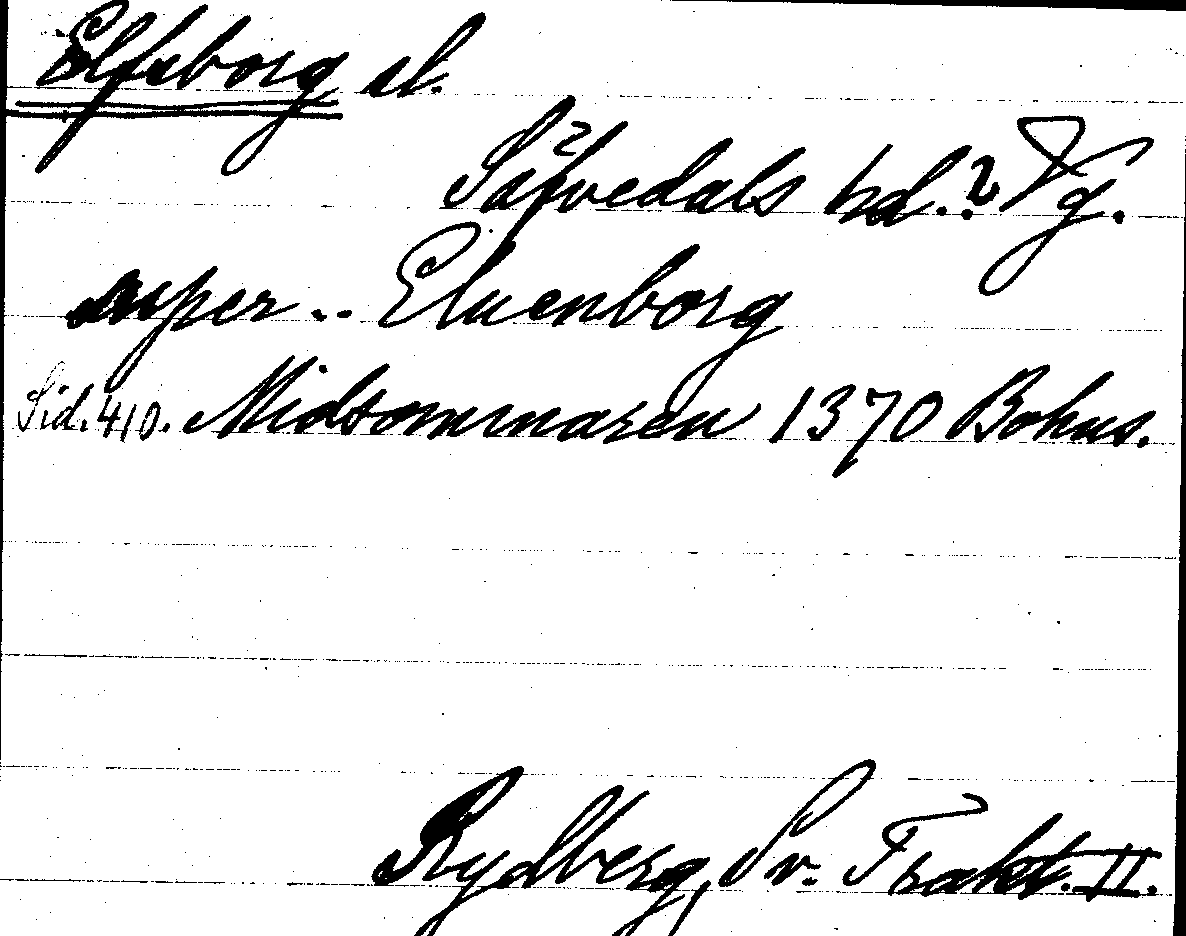 Elfsborg sl.
Säfvedals hd.? Vg.
super .. Eluenborg
Sid. 410. Midsommaren 1370 Bohus.
Rydberg, Sv. Trakt. II.